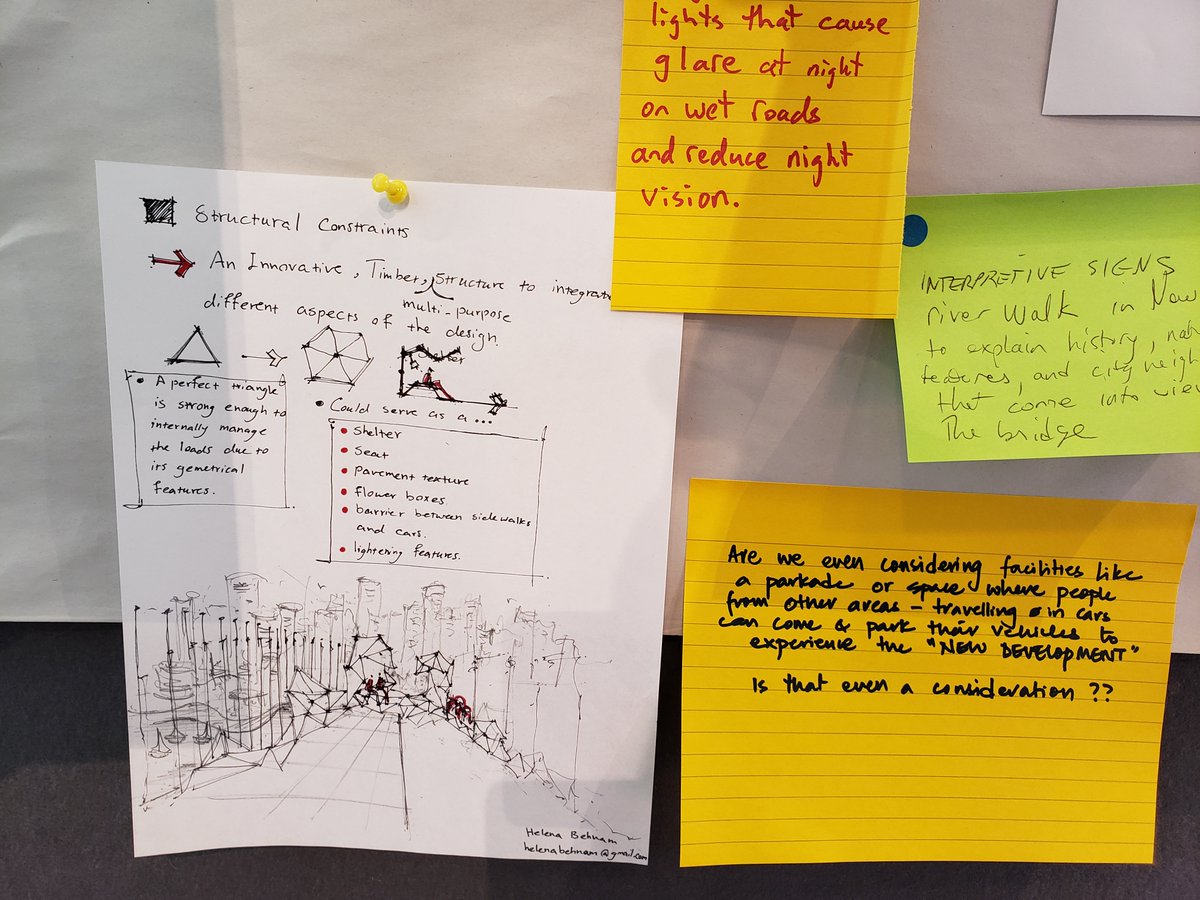 Structural Constraints
An Innovative, Timber, Structure to integrate
multi-purpose
different aspects of the design.
• A perfect triangle
is strong enough to
internally manage
the loads due to
its gemetrical
features.
• Could serve as a ...
• Shelter
• Seat
• pavement texture
• flower boxes
• barrier between sidewalks
and cars.
• lightening features.
Helena Behnam
helenabehnam@gmail.com
lights that cause
glare at night
on wet roads
and reduce night
vision.
INTERPRETIVE SIGNS
river walk in New
to explain history,
features, and city
that come into
The bridge
Are we even considering facilities like
a parkade or space where people
from other areas - travelling in cars
can come & park their vehicles to
experience the "NEW DEVELOPMENT"
Is that even a consideration ??